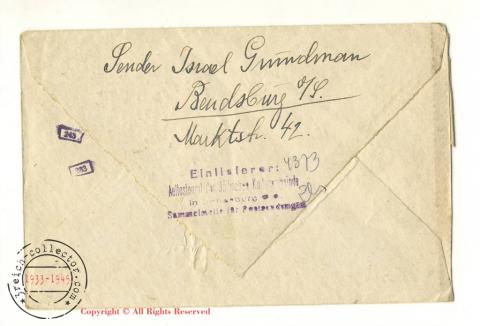 Sender Israel Grundman
Bendsburg O/S.
Marktstr. 42.
243
243
Einlieferer: 4373
Aeltestenrat der Jüdischen Kultusgemeinde
in Bendsburg O-S
Sammelstelle für Postsendungen
reich-collector.com
1933-1945
Copyright © All Rights Reserved